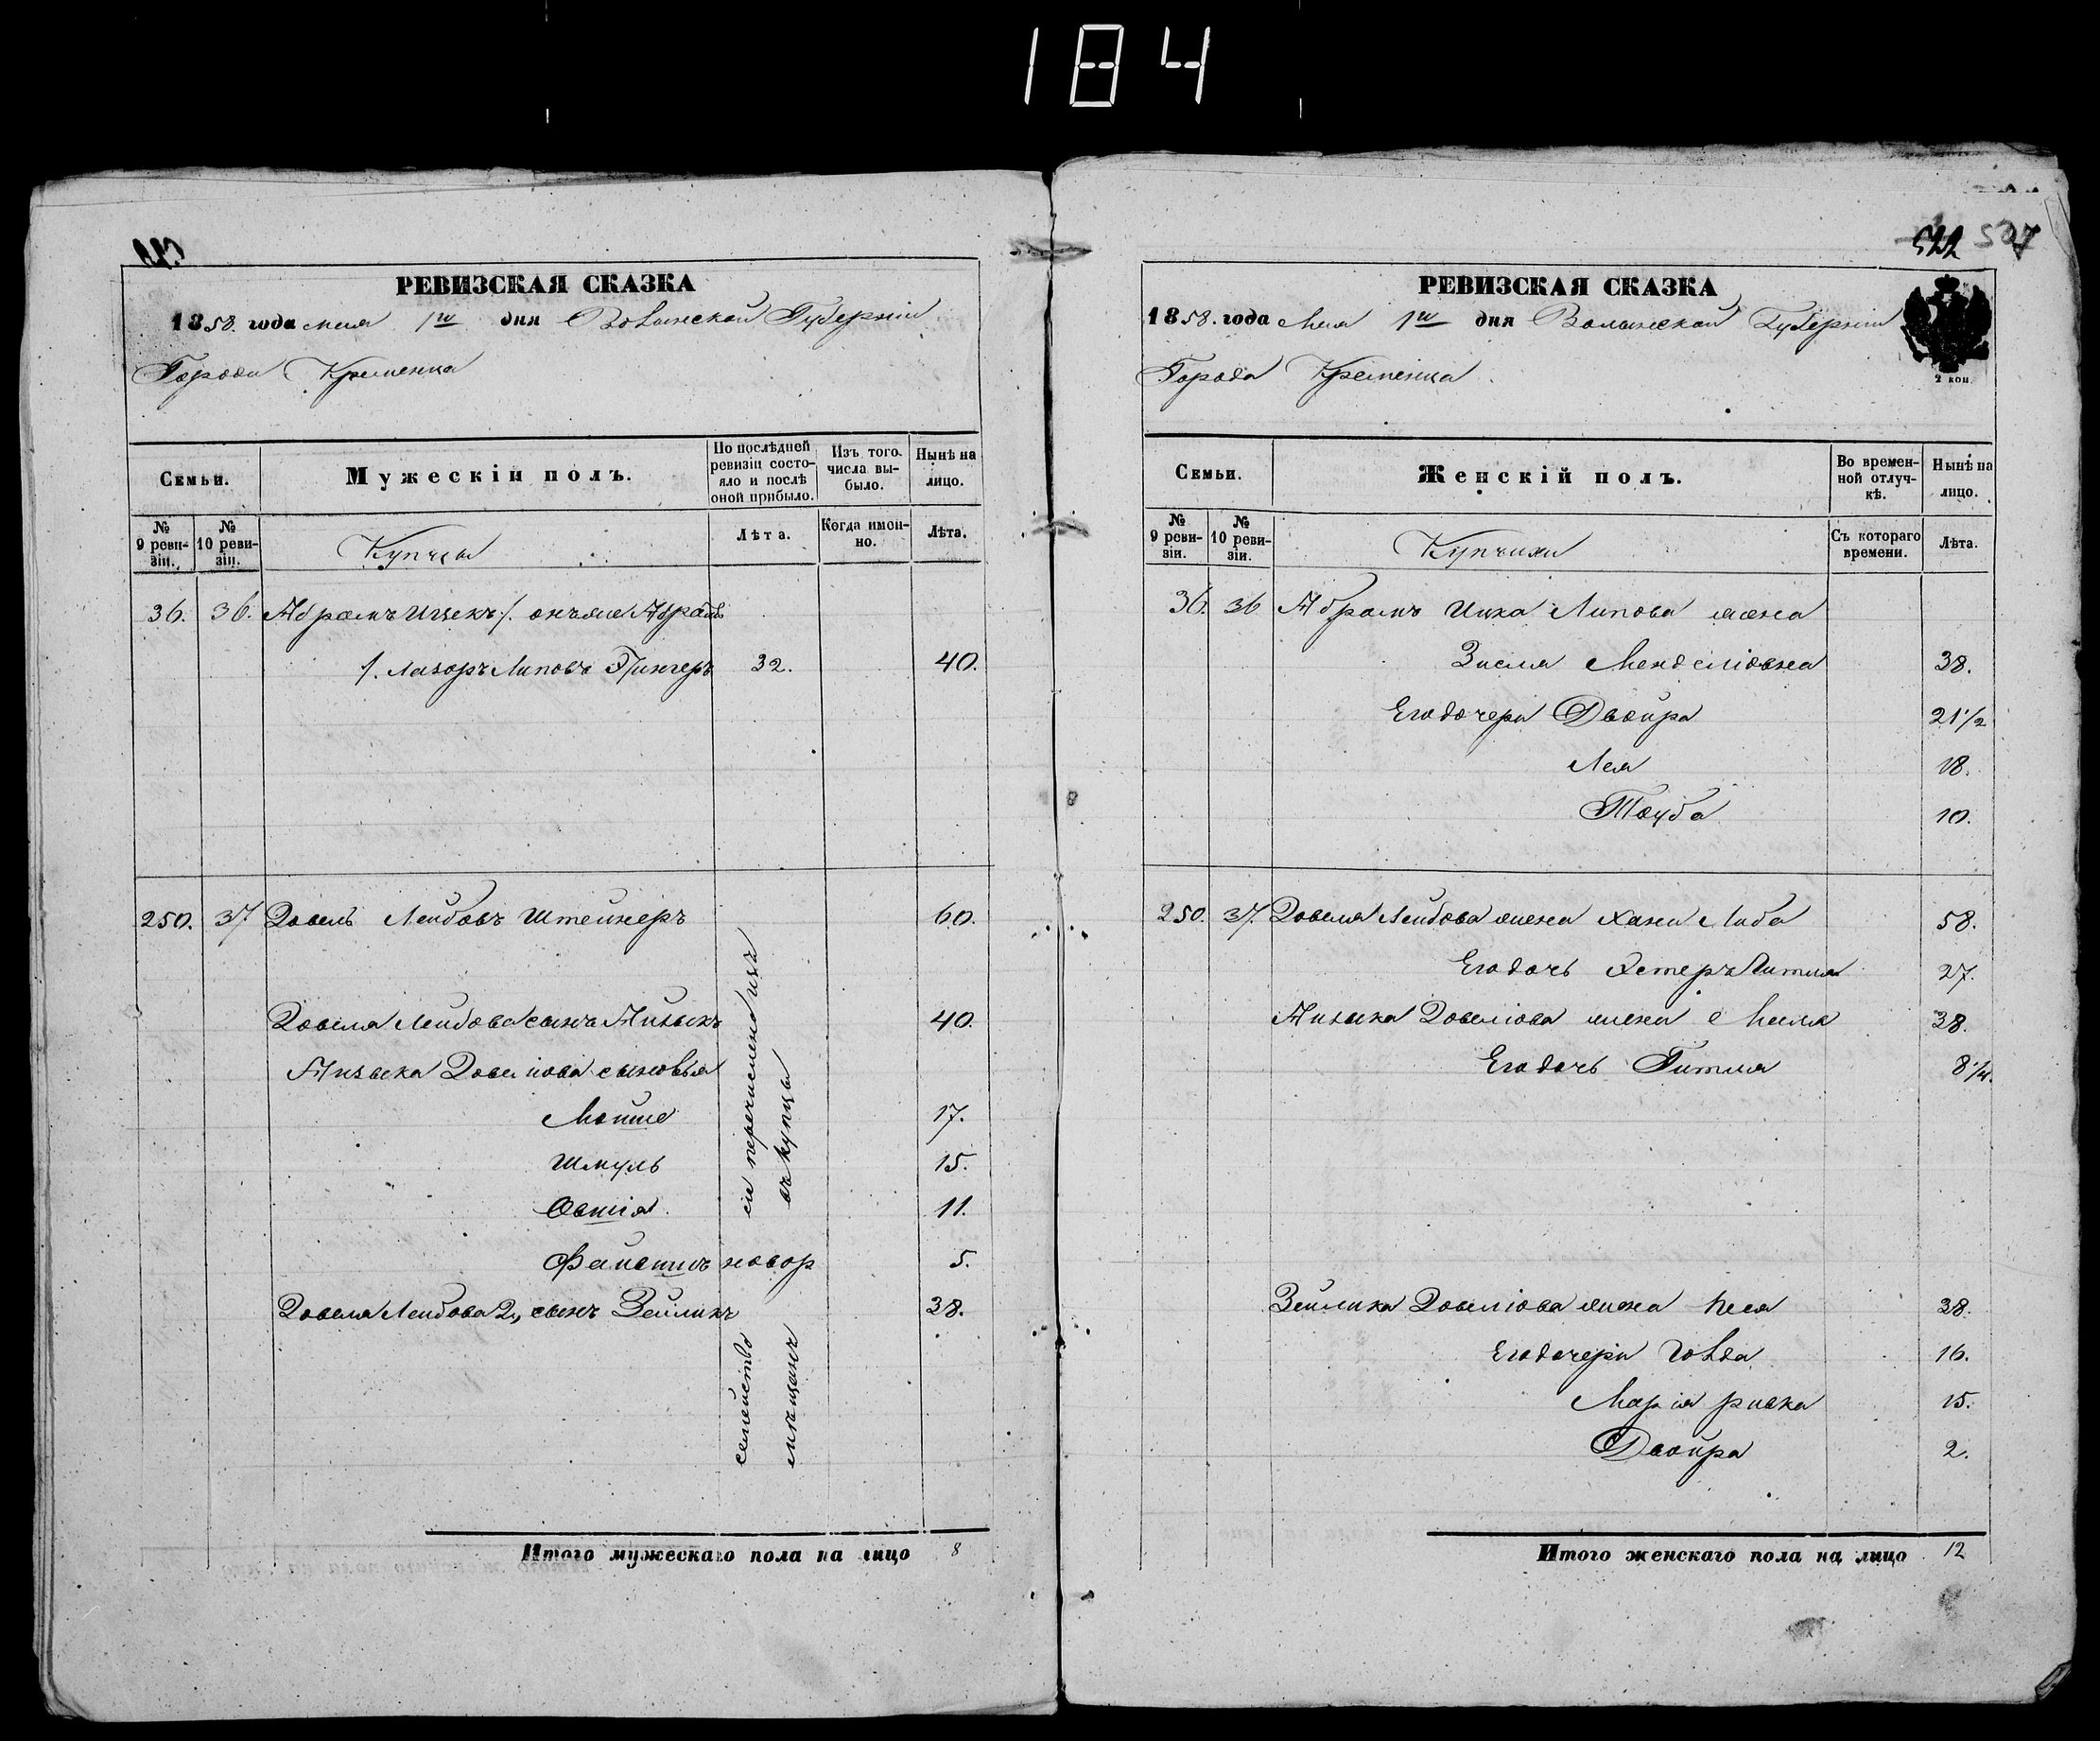 184
РЕВИЗСКАЯ СКАЗКА
1858. года мая 1го дня Волынской Губерніи
Города Кременца
Семьи.
Мужескій полъ.
По послѣдней ревизіи состояло и послѣ оной прибыло.
Изъ того числа выбыло.
Нынѣ на лицо.
№ 9 ревизіи.
№ 10 ревизіи.
Купцы
Лѣта.
Когда именно.
Лѣта.
36. 36. Абрамъ Ицекъ /. онъ же Абрамъ
/. Лазоръ Липовъ 32. 40.
250. 37 Довель Лейбовъ Штейнеръ 60.
Довеля Лейбова сынъ Айзыкъ 40.
Айзыка Довеліова сыновья
Мойше 17.
Шмуль 15.
Овшія 11.
Файвишъ новор 5.
Довеля Лейбова 2й сынъ Зейликъ 38.
сіе перечислено изъ
въ купцы
семейство
мѣщанъ
Итого мужескаго пола на лицо 8
522 507
РЕВИЗСКАЯ СКАЗКА
1858. года Мая 1го дня Волынской Губерніи
Города Кременца.
2 коп.
Семьи.
Женскій полъ.
Во временной отлучкѣ.
Нынѣ на лицо.
№ 9 ревизіи.
№ 10 ревизіи.
Купчихи
Съ котораго времени.
Лѣта.
36. 36 Абрамъ Ицка Липова жена
Зисля Менделіовна 38.
Его дочери Двойра 21 1/2
Лея 18.
Тауба 10.
250. 37. Довеля Лейбова жена Хана Либа 58.
Его дочь Эстеръ Гитля 27.
Айзыка Довеліова жена Маля 38.
Его дочь Гитля 8 1/4.
Зейлика Довеліова жена Нея 38.
Его дочери Голда 16.
Марія ривка 15.
Двойра 2.
Итого женскаго пола на лицо 12